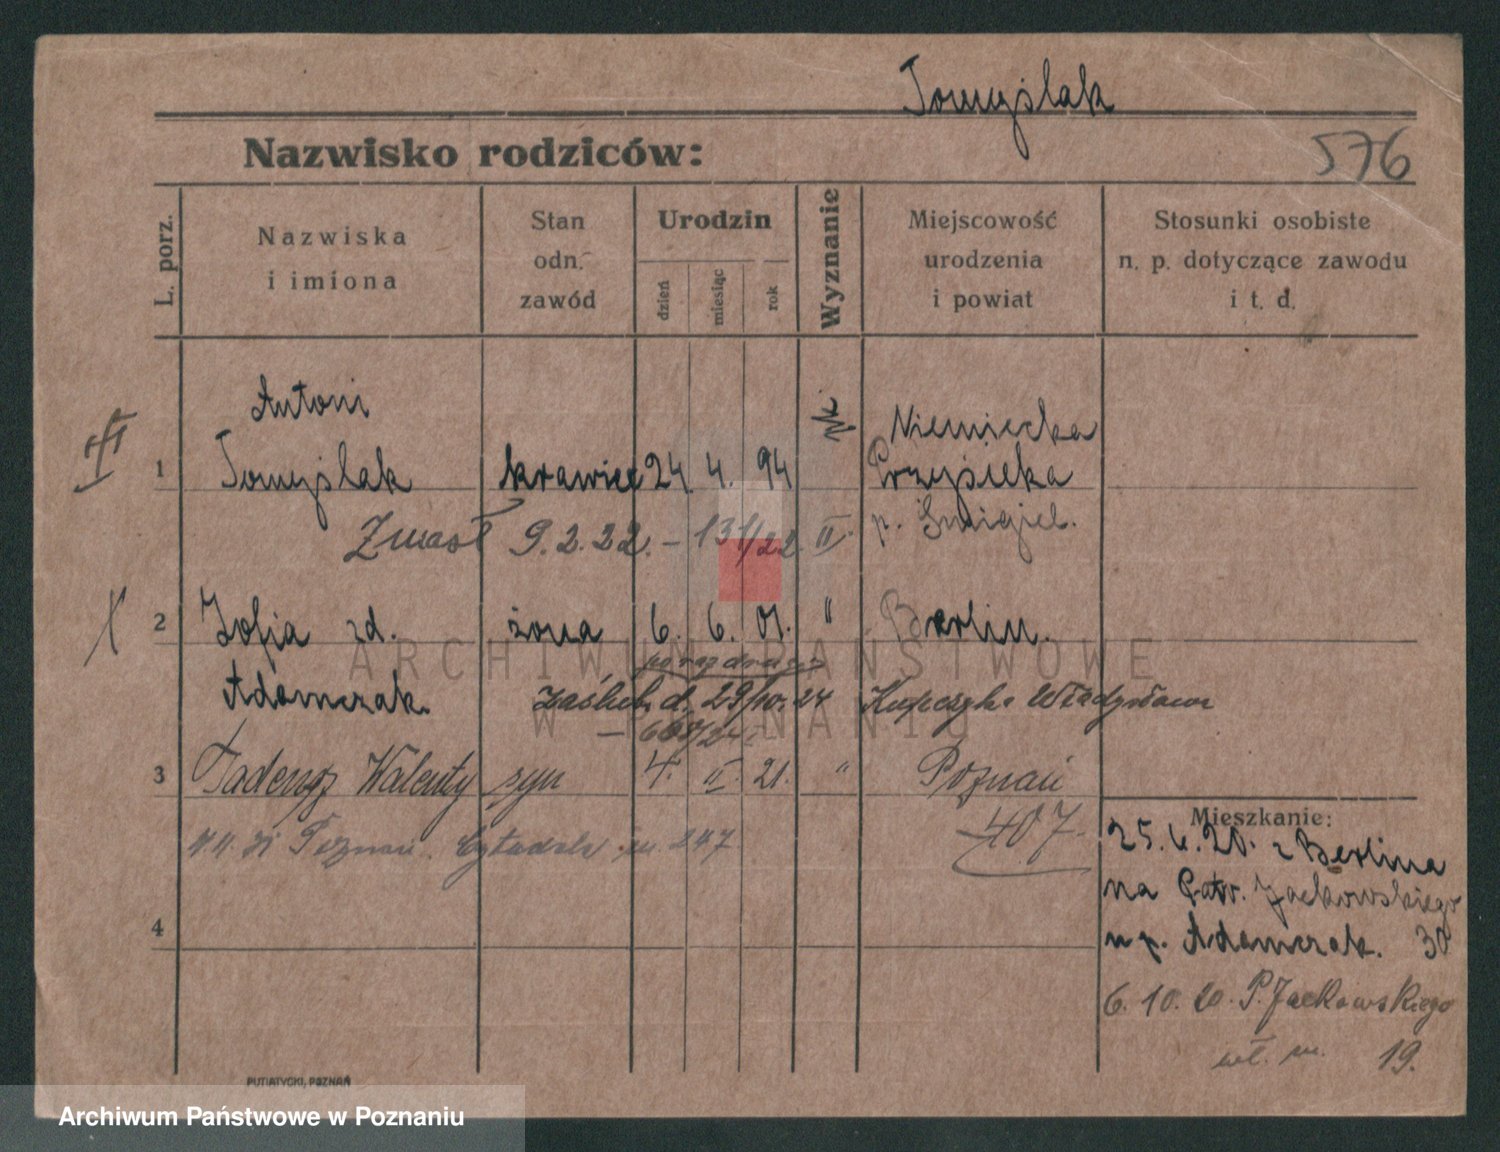 Tomyślak
Nazwisko rodziców:
576
L. porz.
Nazwiska
i imiona
Stan
odn.
zawód
Urodzin
dzień
miesiąc
rok
Wyznanie
Miejscowość
urodzenia
i powiat
Stosunki osobiste
n. p. dotyczące zawodu
i t. d.
Antoni
1 Tomyślak krawiec 24. 4. 94 rk.
Niemiecka
Przysieka
p. Śmigiel.
Zmarł 9.2.22. – 131/22. II.
2 Zofia zd. żona 6. 6. 01. " Berlin.
Adamczak.
zaślub. d. 29/10.24 Kupczyk Władysława
– 668/24
3 Tadeusz Walenty syn 4. II. 21. " Poznań
Poznań, Cytadela 247
407
4
Mieszkanie:
25.6.20. z Berlina
na Patr. Jackowskiego
Adamczak. 30
6. 10. 20. P. Jackowskiego
19.
PUTIATYCKI, POZNAŃ
ARCHIWUM PAŃSTWOWE
W POZNANIU
Archiwum Państwowe w Poznaniu